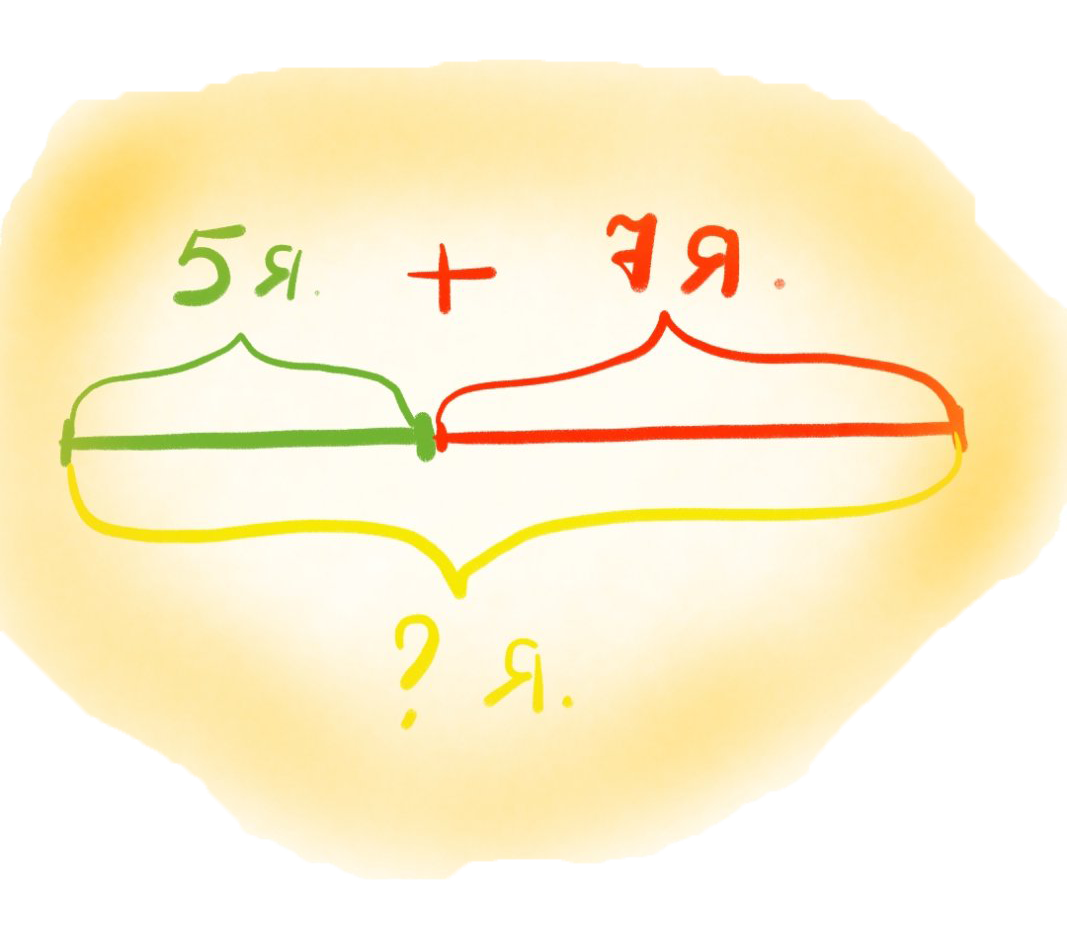 5я. + 7я.
? я.